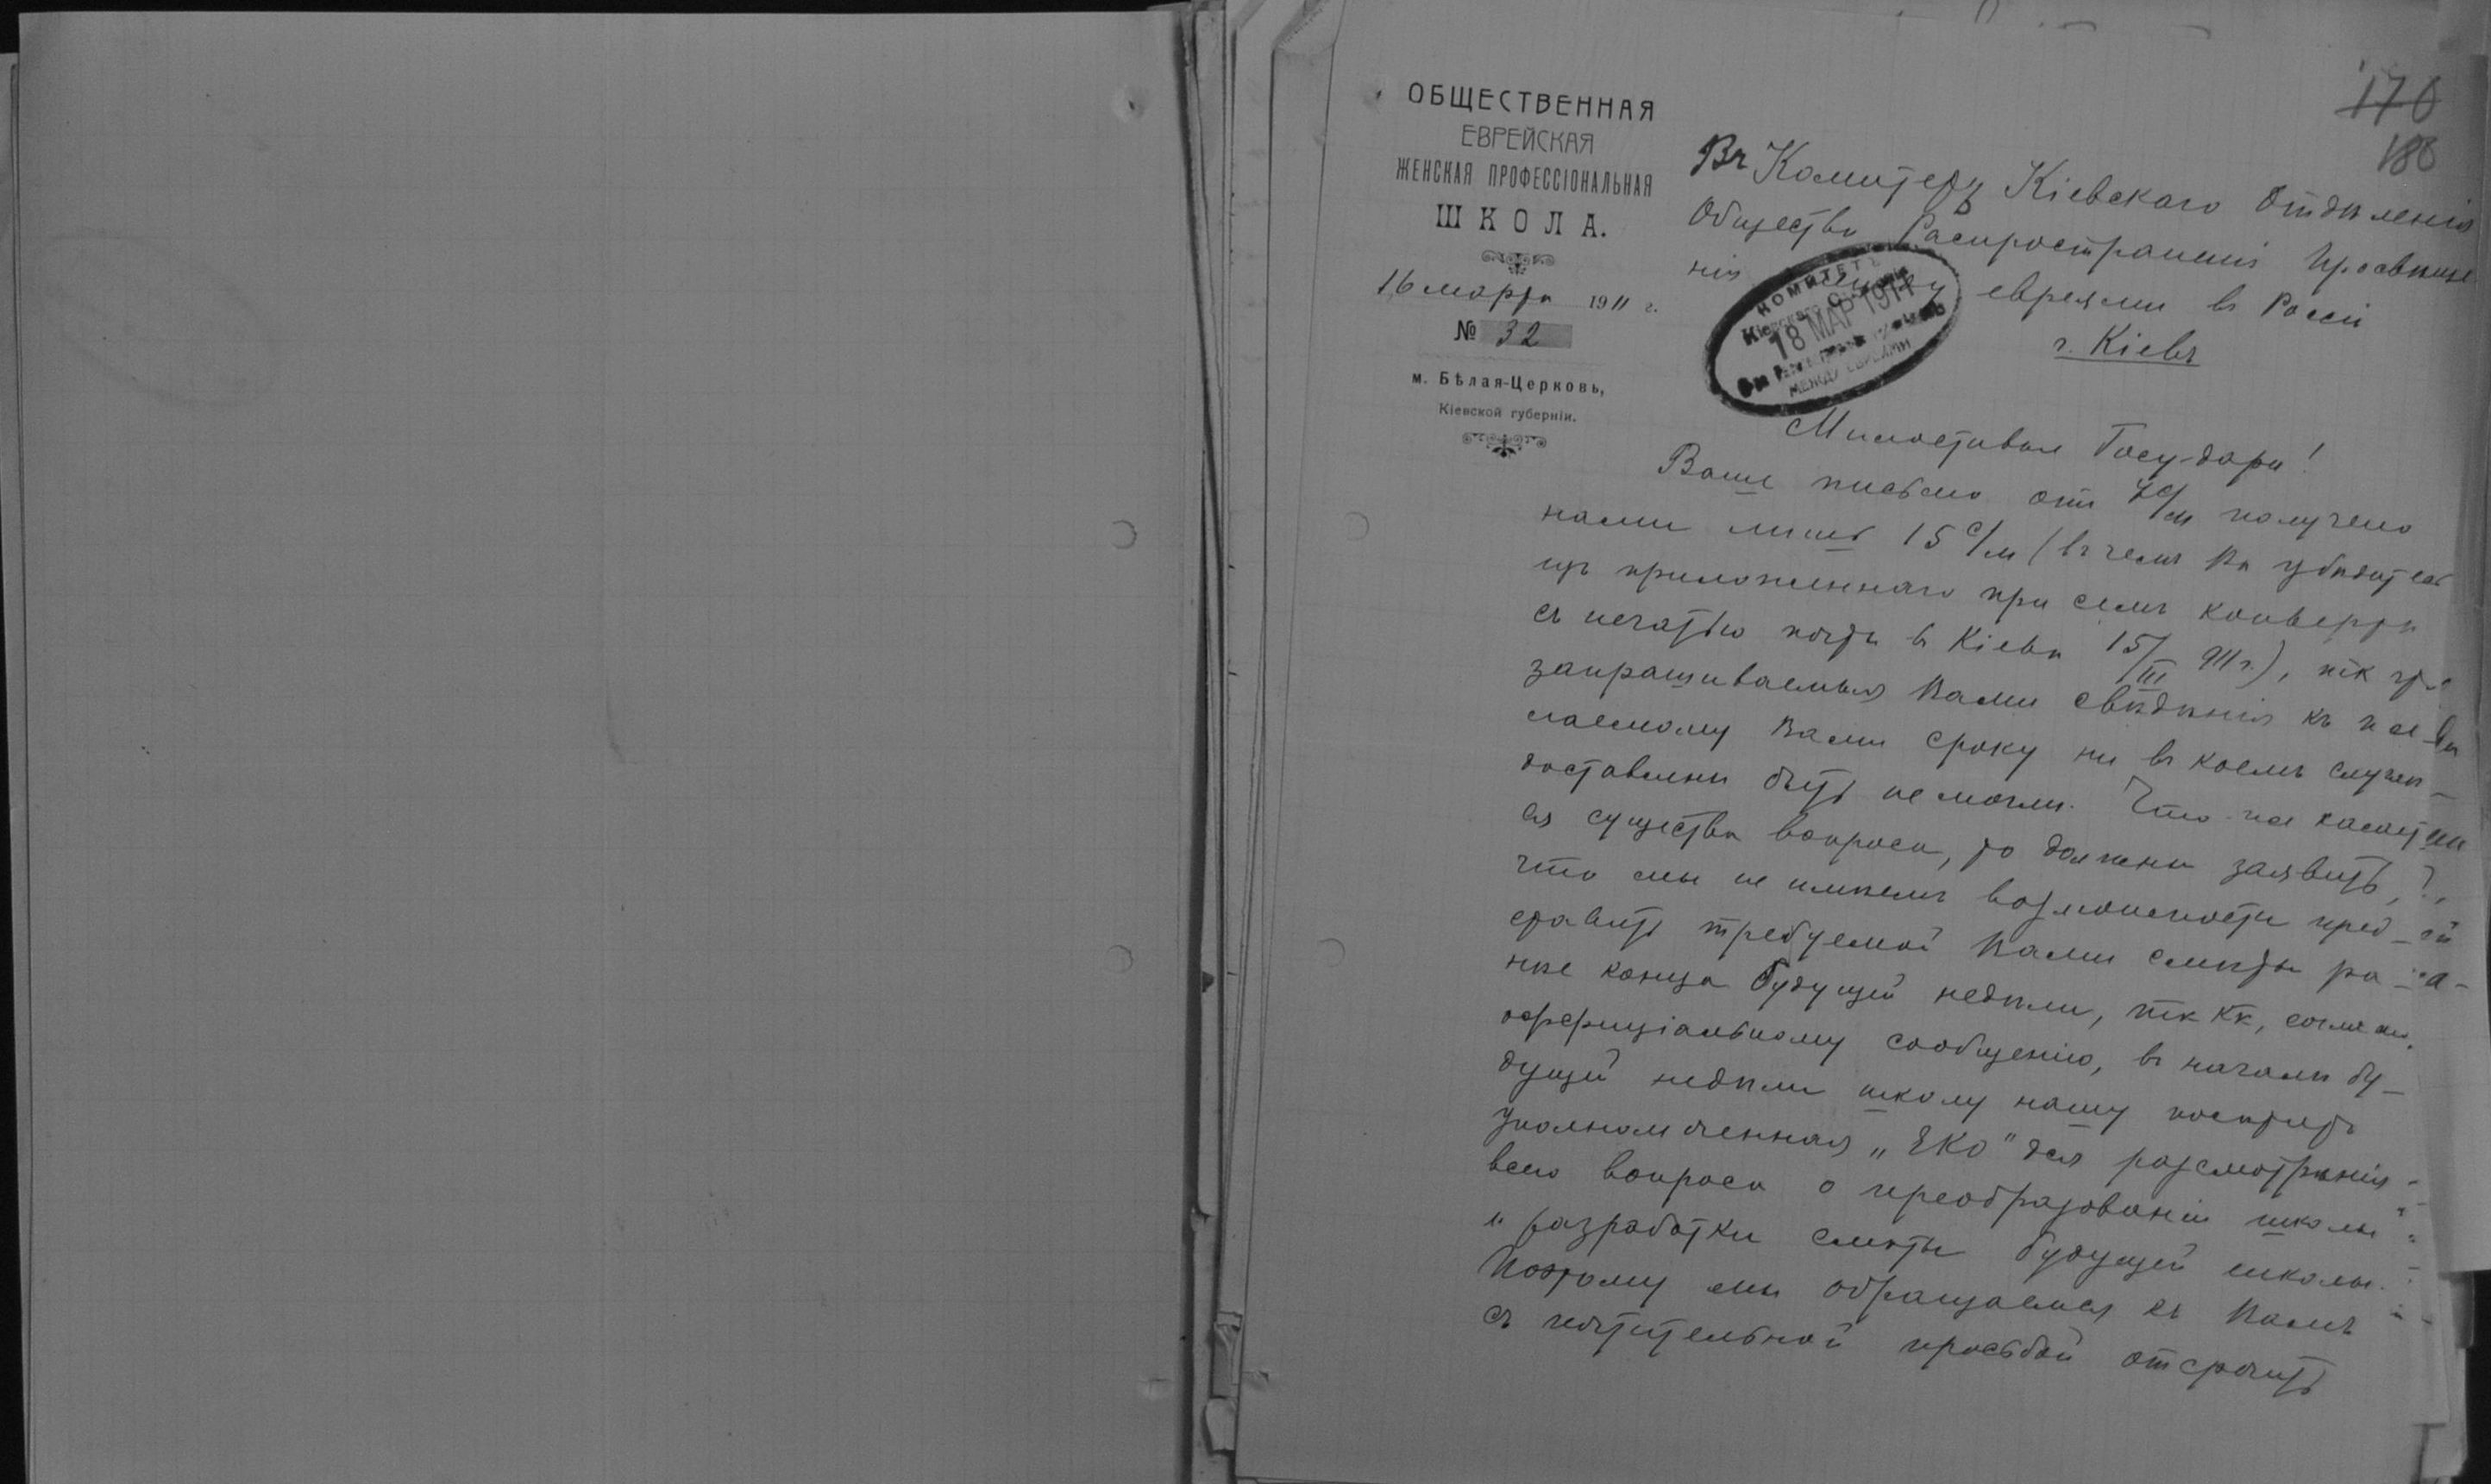 170
188
ОБЩЕСТВЕННАЯ
ЕВРЕЙСКАЯ
ЖЕНСКАЯ ПРОФЕССІОНАЛЬНАЯ
ШКОЛА.
16 марта 1911 г.
№ 32
м. Бѣлая-Церковь,
Кіевской губерніи.
Въ Комитетъ Кіевскаго Отдѣленія
Общества Распространенія Просвѣще
нія между евреями въ Россіи
г. Кіевъ
КОМИТЕТЪ
18 МАР 1911
МЕЖДУ ЕВРЕЯМИ
Милостивые Государи!
Ваше письмо отъ 7 с/м получено
нами лишь 15 с/м (въ чемъ Вы убѣдитесь
изъ приложеннаго при семъ конверта
съ печатью почты въ Кіевѣ 15/III 911 г.),
запрашиваемыя Вами свѣдѣнія къ
лаемому Вами сроку ни въ коемъ случаѣ
доставлены быть не могли. Что же касает
ся существа вопроса, то должны заявить,
что мы не имѣемъ возможности пред-
ставить требуемой Вами смѣты ра-
нѣе конца будущей недѣли, такъ какъ, согласно
оффиціальному сообщенію, въ началѣ бу-
дущей недѣли школу нашу посѣтитъ
уполномоченная „ЕКО" для разсмотрѣнія
всего вопроса о преобразованіи школы
и разработки смѣты будущей школы.
Поэтому мы обращаемся къ Вамъ
съ почтительной просьбой отсрочить